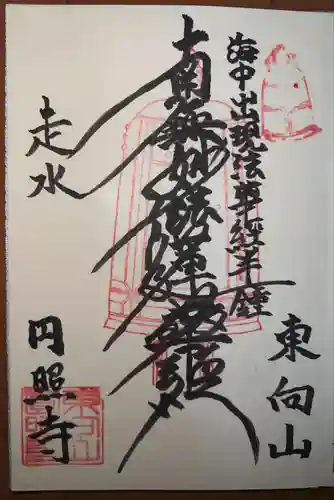 東向山
海中出現法華経半鐘
南無妙法蓮華経
走水
円照寺